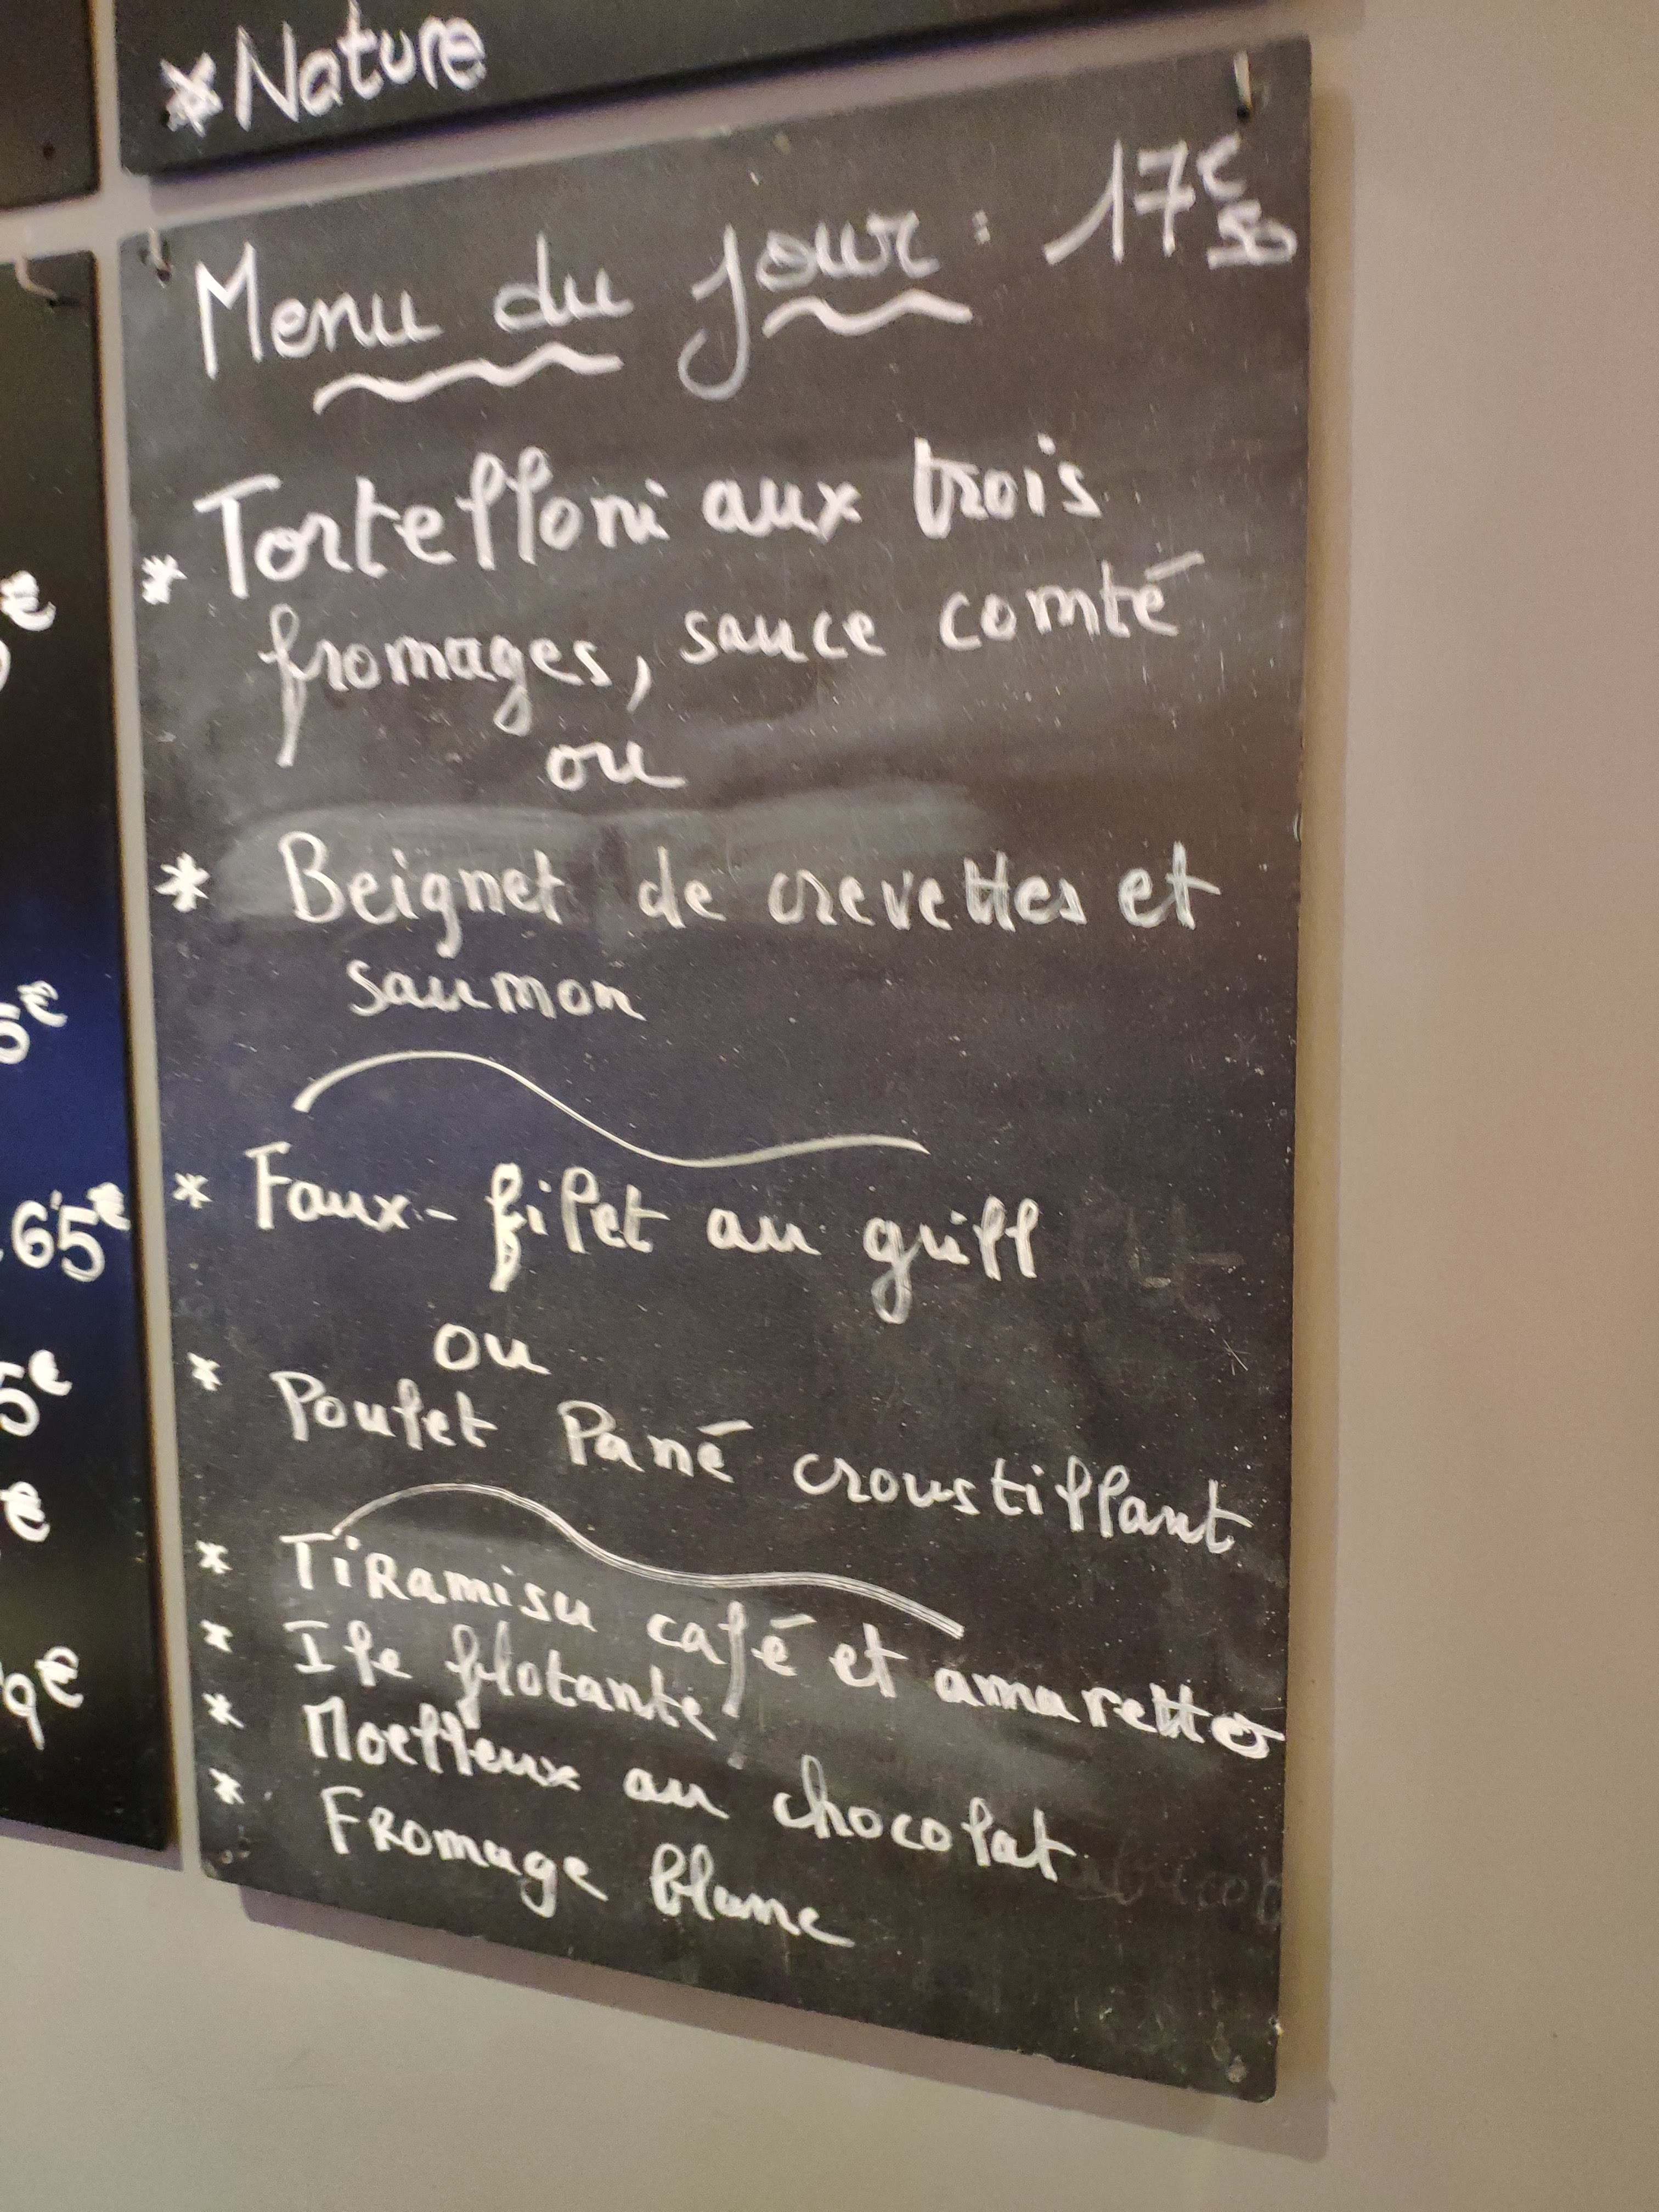 *Nature
Menu du jour : 17€50
* Tortelloni aux trois
fromages, sauce comté
ou
* Beignet de crevettes et
saumon
* Faux-filet au grill
ou
* Poulet Pané croustillant
* Tiramisu café et amaretto
* Ile flotante
* Moelleux au chocolat
* Fromage blanc
€
5€
65€
5€
€
9€